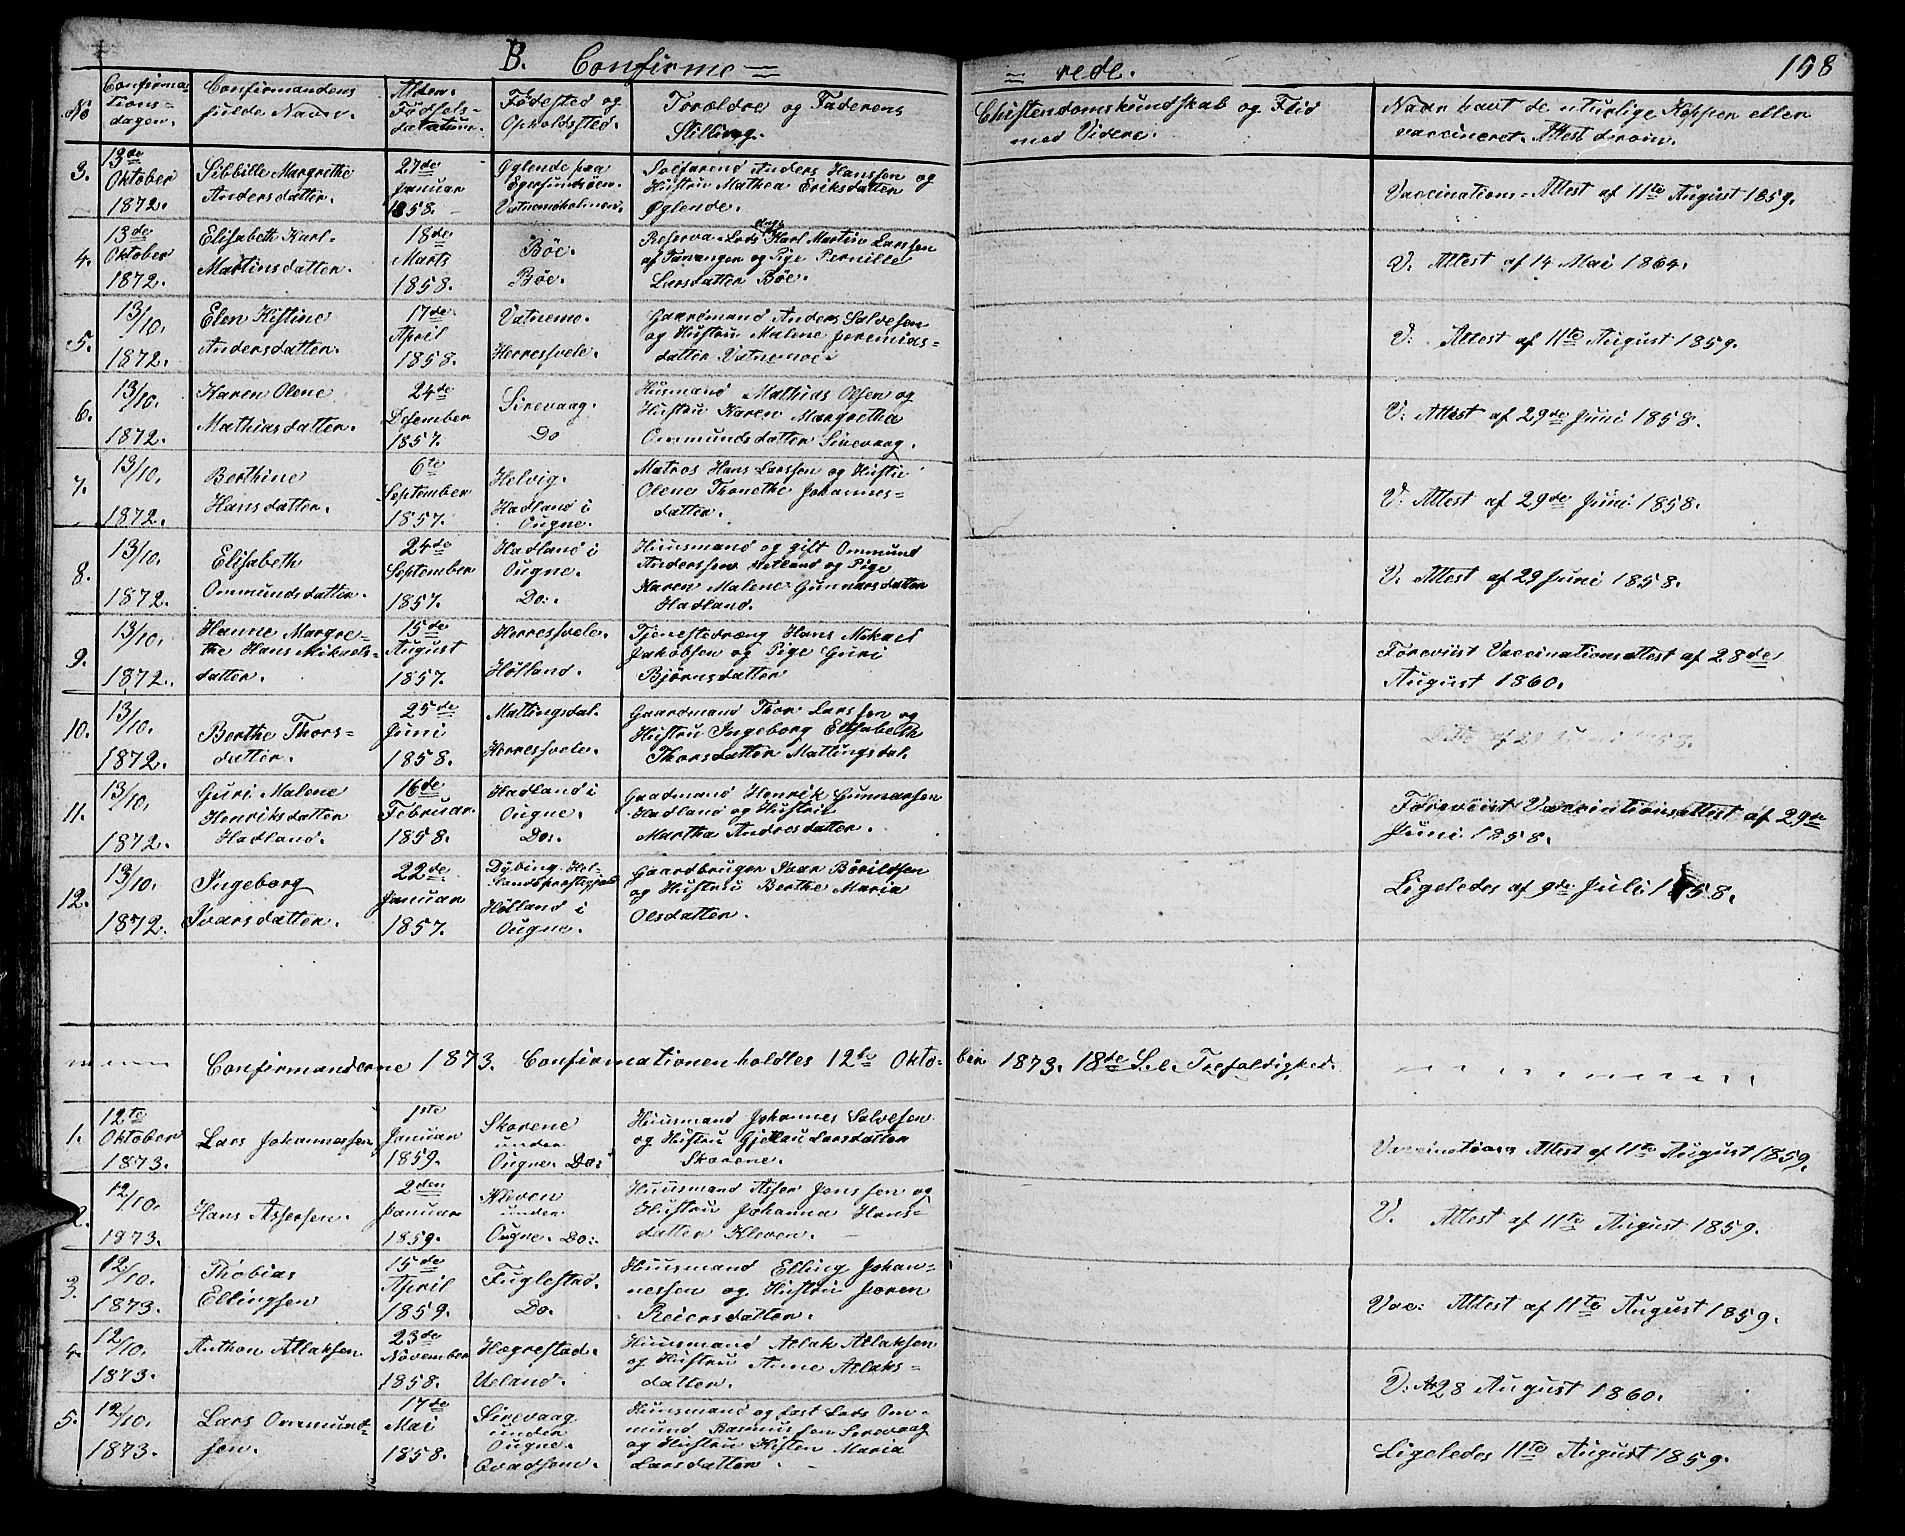 B. Confirme=
= rede.
168
No
Confirma-
tions-
dagen.
Confirmandens
fulde Navn.
Alder.
Fødsels-
datatum.
Fødested og
Opholdssted.
Forældre og Faderens
Stilling.
Christendomskundskab og Flid
med Videre.
Naar havt de naturlige Kopper eller
vaccineret. Attest derom.
3.
13de
Oktober
1872.
Sibbille Margrethe
Andersdatter.
27de
Januar
1858.
Øglende paa
Egersundsøen.
Vatnemoholmen.
Søefarend Anders Hanssen og
Hustru Mathea Eriksdatter
Øglende.
Vaccinations-Attest af 11te August 1859.
4.
13de
Oktober
1872.
Elisabeth Karl-
Martinsdatter.
18de
Marts
1858.
Bøe.
Bøe.
Reserva-Lods Karl Martin Larssen
af Tananger og Pige Pernille
Larsdatter Bøe.
V: Attest af 14 Mai 1864.
5.
13/10.
1872.
Elen Kistine
Andersdatter.
17de
April
1858.
Vatnemo.
Herresvele.
Gaardmand Anders Salvesen
og Hustru Malene Jeremias-
datter Vatnemoe.
V: Attest af 11te August 1859.
6.
13/10.
1872.
Karen Olene
Mathiasdatter.
24de
Desember
1857.
Sirevaag.
Do
Huusmand Mathias Olsen og
Hustru Karen Margretha
Ommundsdatter Sirevaag.
V: Attest af 29de Juni 1858.
7.
13/10.
1872.
Berthine
Hansdatter.
6te
September
1857.
Helvig.
Hadland i
Ougne.
Matros Hans Larssen og Hustru
Olene Thonethe Johannes-
datter.
V: Attest af 29de Juni 1858.
8.
13/10.
1872.
Elisabeth
Ommundsdatter.
24de
September
1857.
Hadland i
Ougne.
Do:
Huusmand og gift Ommund
Anderssen Hetland og Pige
Karen Malene Gunnarsdatter
Hadland.
V: Attest af 29 Juni 1858.
9.
13/10.
1872.
Hanne Margre-
the Hans Mikaels-
datter.
15de
August
1857.
Herresvele.
Hølland.
Tjenestedræng Hans Mikael
Jakobsen og Pige Guri
Bjørnsdatter
Foreviist Vaccinationsattest af 28de
August 1860.
10.
13/10.
1872.
Berthe Thors-
datter.
25de
Juni
1858.
Mattingsdal.
Herresvele.
Gaardmand Thor Larssen og
Hustru Ingeborg Elisabeth
Thorsdatter Mattingsdal.
11.
13/10.
1872.
Guri Malene
Henriksdatter
Hadland.
16de
Februar
1858.
Hadland i
Ougne.
Do:
Gaadmand Henrik Gunnarsen
Hadland og Hustru
Martha Andresdatter.
Foreviist Vaccinationsattest af 29de
Juni 1858.
12.
13/10.
1872.
Ingeborg
Ivarsdatter.
22de
Januar
1857.
Dybing Hel-
landspræstegjæld
Hølland i
Ougne.
Gaardbruger Ivar Børildsen
og Hustru Berthe Maria
Olsdatter.
Ligeledes af 9de Juli 1858.
Confirmanderne 1873. Confirmationen holdtes 12te Okto-
ber 1873. 18de S. e. Trefoldighed.
1.
12te
Oktober
1873.
Lars Johannessen
1ste
Januar
1859.
Skorene
under
Ougne. Do:
Huusmand Johannes Salvesen
og Hustru Gjellau Larsdatter
Skorene.
Vaccinations Attest af 11te August 1859.
2.
12/10.
1873.
Hans Assersen.
2den
Januar
1859.
Kleven
under
Ougne. Do:
Huusmand Asser Jonssen og
Hustru Johanna Hans-
datter Kleven.
V. Attest af 11te August 1859.
3.
12/10.
1873.
Thobias
Ellingsen
15de
April
1859.
Fuglestad.
Do.
Huusmand Elling Johan-
nessen og Hustru Joren
Reiersdatter.
Vac: Attest af 11te August 1859.
4.
12/10.
1873.
Anthon Atlaksen
23de
November
1858.
Hegrestad.
Ueland.
Huusmand Atlak Atlaksen
og Hustru Anne Atlaks-
datter.
V: At 28 August 1860.
5.
12/10.
1873.
Lars Ommund-
sen.
17de
Mai
1858.
Sirevaag
under
Ougne.
Qvadsem.
Huusmand og fast Lods Om-
mund Rasmussen Sirevaag
og Hustru Kisten Maria
Larsdatter.
Ligeledes 11te August 1859.